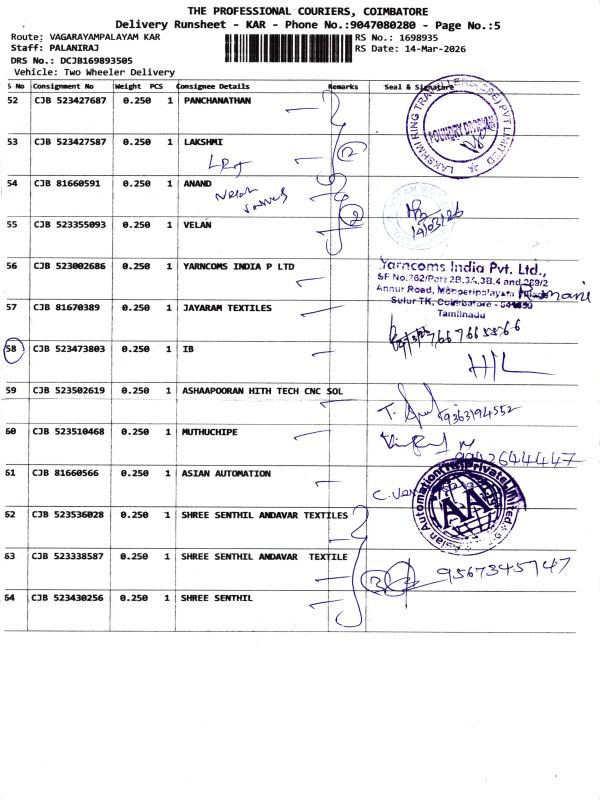 THE PROFESSIONAL COURIERS, COIMBATORE
Delivery Runsheet - KAR - Phone No.:9047080280 - Page No.:5
Route: VAGARAYAMPALAYAM KAR RS No.: 1698935
Staff: PALANIRAJ RS Date: 14-Mar-2026
DRS No.: DCJB169893505
Vehicle: Two Wheeler Delivery
S No Consignment No Weight PCS Consignee Details Remarks Seal & Signature
52 CJB 523427687 0.250 1 PANCHANATHAN
LAKSHMI RING TRAVELLERS (CBE) PVT LIMITED
FOUNDRY DIVISION
53 CJB 523427587 0.250 1 LAKSHMI
LRT 2
54 CJB 81660591 0.250 1 ANAND
Velan
2
14/03/26
55 CJB 523355093 0.250 1 VELAN
56 CJB 523002686 0.250 1 YARNCOMS INDIA P LTD
Yarncoms India Pvt. Ltd.,
SF No.262/Part 2B,3A,3B,4 and 269/2
Annur Road, Monperipalayam
Sulur TK, Coimbatore -
Tamilnadu
57 CJB 81670389 0.250 1 JAYARAM TEXTILES
58 CJB 523473803 0.250 1 IB
H/L
59 CJB 523502619 0.250 1 ASHAAPOORAN HITH TECH CNC SOL
9363194552
60 CJB 523510468 0.250 1 MUTHUCHIPE
9942644447
61 CJB 81660566 0.250 1 ASIAN AUTOMATION
Asian Automation Private Limited
AA
62 CJB 523536028 0.250 1 SHREE SENTHIL ANDAVAR TEXTILES
63 CJB 523338587 0.250 1 SHREE SENTHIL ANDAVAR TEXTILE
3
9567345747
64 CJB 523430256 0.250 1 SHREE SENTHIL